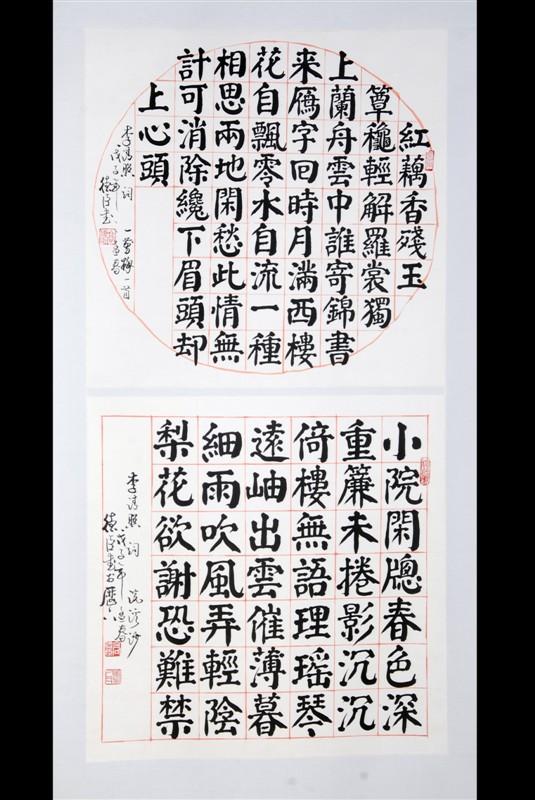 紅藕香殘玉
簟龝輕解羅裳獨
上蘭舟雲中誰寄錦書
来鴈字回時月滿西樓
花自飄零水自流一種
相思兩地閑愁此情無
計可消除纔下眉頭却
上心頭
李清照詞 一剪梅一首
戊子年孟春
德臣書
小院閑牕春色深
重簾未捲影沉沉
倚樓無語理瑤琴
遠岫出雲催薄暮
細雨吹風弄輕陰
梨花欲謝恐難禁
李清照詞 浣溪沙
戊子年孟春
德臣書於